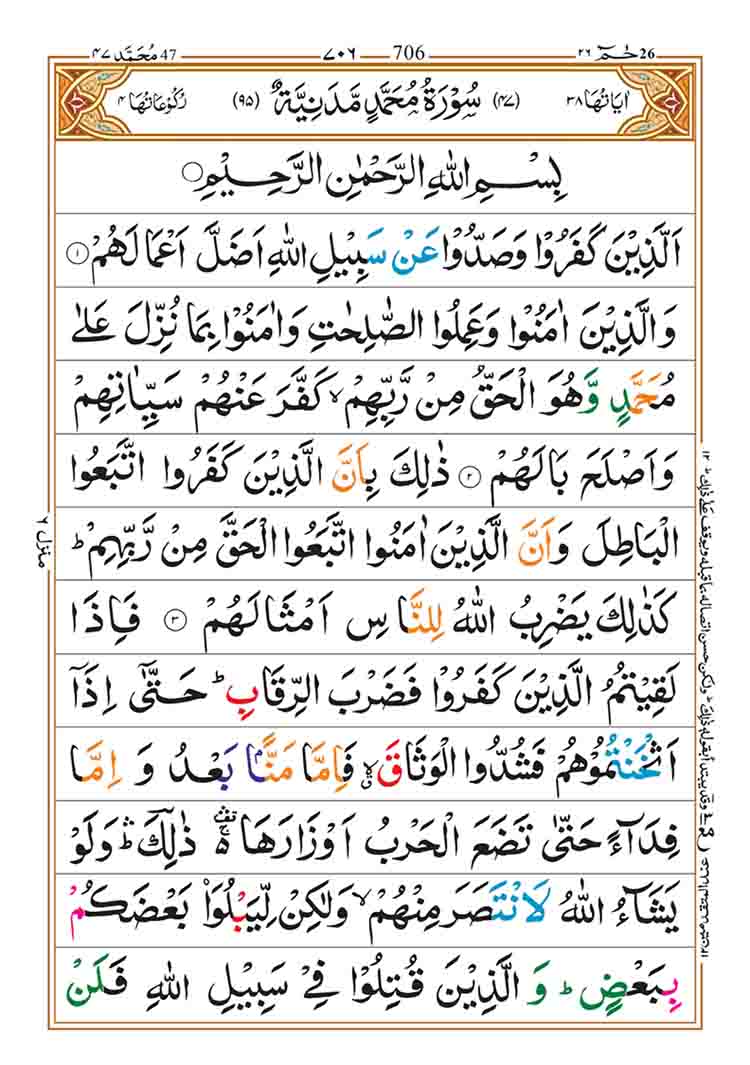 ٤٧ مُحَمَّد 47 ٧٠٦ 706 ٢٦ حٰمٓ 26
اٰيَاتُهَا ٣٨ (٤٧) سُوْرَةُ مُحَمَّدٍ مَّدَنِيَّةٌ (٩٥) رُكُوْعَاتُهَا ٤
بِسْمِ اللّٰهِ الرَّحْمٰنِ الرَّحِيْمِ
اَلَّذِيْنَ كَفَرُوْا وَصَدُّوْا عَنْ سَبِيْلِ اللّٰهِ اَضَلَّ اَعْمَالَهُمْ ١
وَالَّذِيْنَ اٰمَنُوْا وَعَمِلُوا الصّٰلِحٰتِ وَاٰمَنُوْا بِمَا نُزِّلَ عَلٰى
مُحَمَّدٍ وَّهُوَ الْحَقُّ مِنْ رَّبِّهِمْ ۙ كَفَّرَ عَنْهُمْ سَيِّاٰتِهِمْ
وَاَصْلَحَ بَالَهُمْ ٢ ذٰلِكَ بِاَنَّ الَّذِيْنَ كَفَرُوا اتَّبَعُوا
الْبَاطِلَ وَاَنَّ الَّذِيْنَ اٰمَنُوا اتَّبَعُوا الْحَقَّ مِنْ رَّبِّهِمْ ؕ
كَذٰلِكَ يَضْرِبُ اللّٰهُ لِلنَّاسِ اَمْثَالَهُمْ ٣ فَاِذَا
لَقِيْتُمُ الَّذِيْنَ كَفَرُوْا فَضَرْبَ الرِّقَابِ ؕ حَتّٰٓى اِذَآ
اَثْخَنْتُمُوْهُمْ فَشُدُّوا الْوَثَاقَ ۙ فَاِمَّا مَنًّۢا بَعْدُ وَ اِمَّا
فِدَآءً حَتّٰى تَضَعَ الْحَرْبُ اَوْزَارَهَا ۛ ذٰلِكَ ۛ وَلَوْ
يَشَآءُ اللّٰهُ لَانْتَصَرَ مِنْهُمْ ۙ وَلٰكِنْ لِّيَبْلُوَا۟ بَعْضَكُمْ
بِبَعْضٍ ؕ وَ الَّذِيْنَ قُتِلُوْا فِيْ سَبِيْلِ اللّٰهِ فَلَنْ
منزل ٦